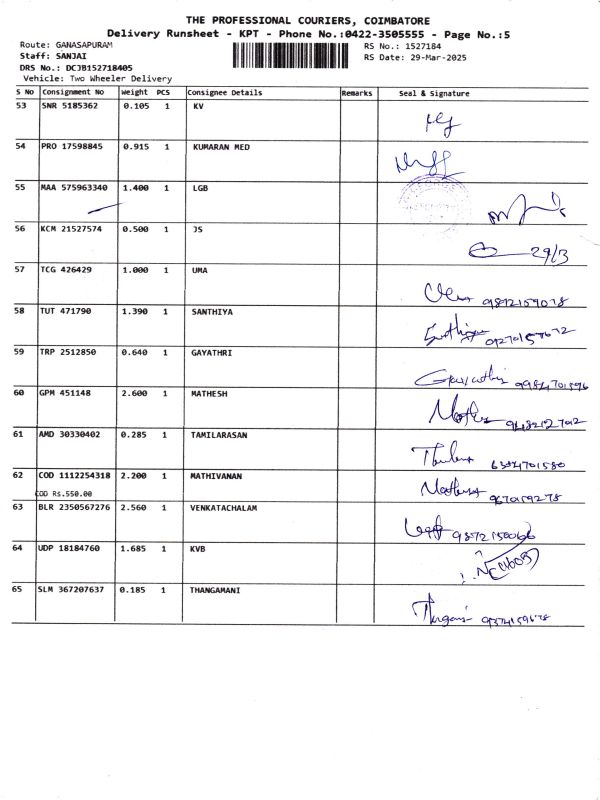 THE PROFESSIONAL COURIERS, COIMBATORE
Delivery Runsheet - KPT - Phone No.:0422-3505555 - Page No.:5
Route: GANASAPURAM RS No.: 1527184
Staff: SANJAI RS Date: 29-Mar-2025
DRS No.: DCJB152718405
Vehicle: Two Wheeler Delivery
S No Consignment No Weight PCS Consignee Details Remarks Seal & Signature
53 SNR 5185362 0.105 1 KV
54 PRO 17598845 0.915 1 KUMARAN MED
55 MAA 575963340 1.400 1 LGB
56 KCM 21527574 0.500 1 JS 29/3
57 TCG 426429 1.000 1 UMA
58 TUT 471790 1.390 1 SANTHIYA
59 TRP 2512850 0.640 1 GAYATHRI
60 GPM 451148 2.600 1 MATHESH
61 AMD 30330402 0.285 1 TAMILARASAN
62 COD 1112254318 2.200 1 MATHIVANAN
COD Rs.550.00
63 BLR 2350567276 2.560 1 VENKATACHALAM
64 UDP 18184760 1.685 1 KVB
65 SLM 367207637 0.185 1 THANGAMANI